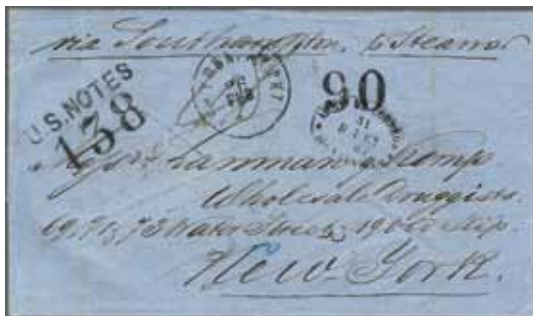 via Southampton. & Steamer
U.S. NOTES
138
90
31
Messrs Lanman & Kemp
Wholesale Druggists.
69, 71, 73 Water Street, Old Slip.
New-York.